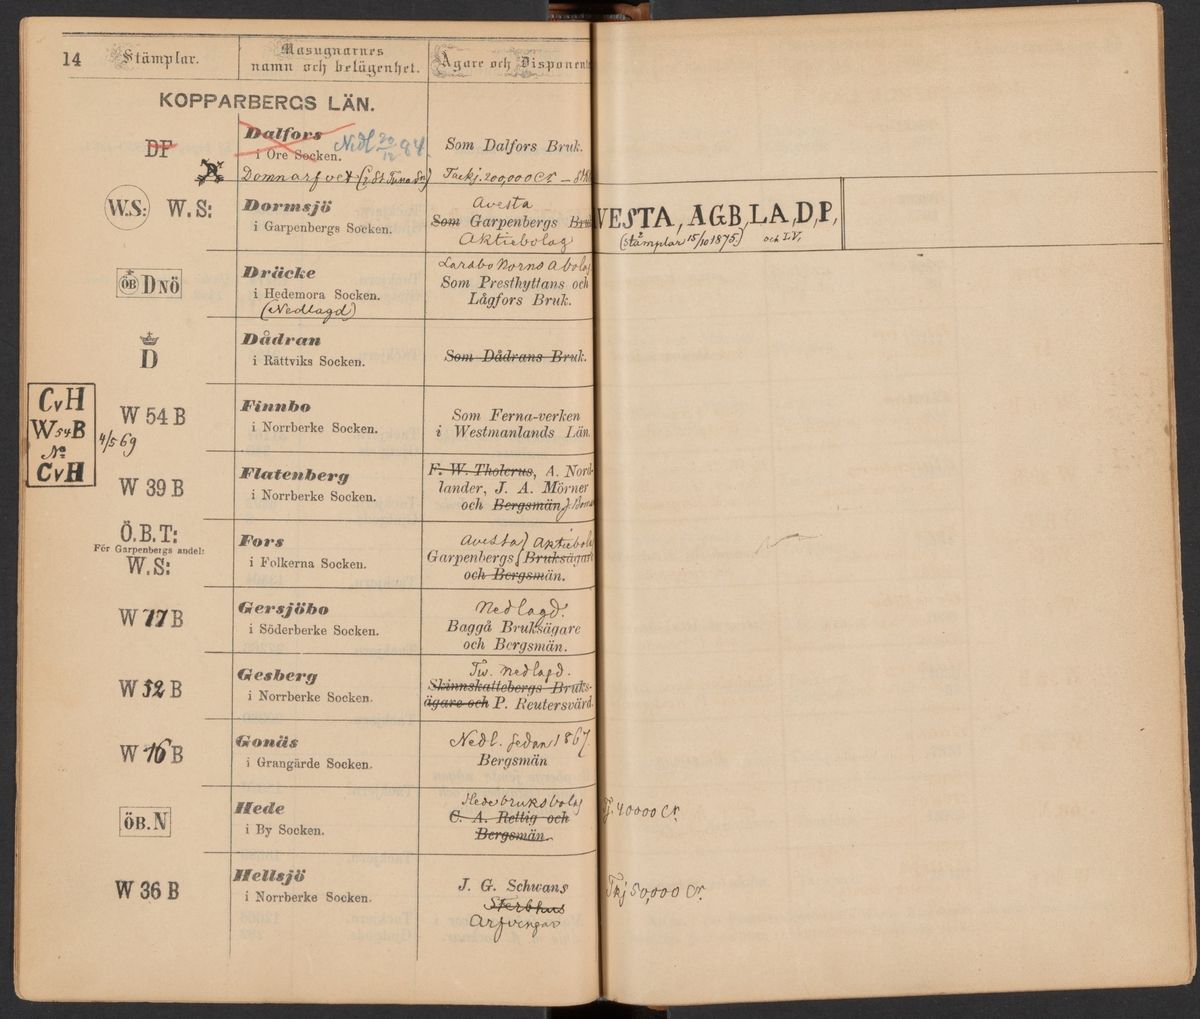 14
Stämplar.
Masugnarnes
namn och belägenhet.
Ägare och Disponent
KOPPARBERGS LÄN.
DF
Dalfors
i Ore Socken.
Nedl 20/12 84.
Som Dalfors Bruk.
Domnarfvet (i St. Tuna Sn)
Tackj. 200,000 Cr
W.S: W. S:
Dormsjö
i Garpenbergs Socken.
Avesta
Som Garpenbergs Bru
Aktiebolag
VESTA, AGB, LA, D, P,
(Stämplar 15/10 1875) och I.V.
ÖB DNÖ
Dräcke
i Hedemora Socken.
(Nedlagd)
Larsbo Norns Abolag
Som Presthyttans och
Lågfors Bruk.
D
Dådran
i Rättviks Socken.
Som Dådrans Bruk.
CvH
W 54 B
No
CvH
4/5 69
W 54 B
Finnbo
i Norrberke Socken.
Som Ferna-verken
i Westmanlands Län.
W 39 B
Flatenberg
i Norrberke Socken.
F. W. Tholerus, A. Nord-
lander, J. A. Mörner
och Bergsmän
Ö.B.T:
För Garpenbergs andel:
W.S:
Fors
i Folkerna Socken.
Avesta Aktiebola
Garpenbergs Bruksägare
och Bergsmän.
W 77 B
Gersjöbo
i Söderberke Socken.
Nedlagd.
Baggå Bruksägare
och Bergsmän.
W 52 B
Gesberg
i Norrberke Socken.
Tw. nedlagd.
Skinnskattebergs Bruks-
ägare och P. Reutersvärd.
W 76 B
Gonäs
i Grangärde Socken.
Nedl. sedan 1867.
Bergsmän
ÖB.N
Hede
i By Socken.
Hedebruksbolag
C. A. Rettig och
Bergsmän.
Tj. 40000 Cr.
W 36 B
Hellsjö
i Norrberke Socken.
J. G. Schwans
Sterbhus
Arfvingar
Tkj 50,000 Cr.